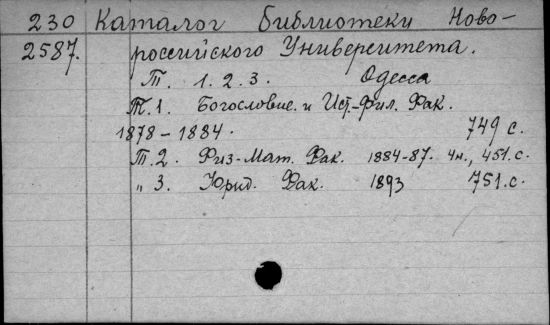 230 Каталог Библиотеки Ново-
2587. российского Университета.
Т. 1. 2. 3. Одесса
Т. 1. Богословие. и Ист.-Фил. Фак.
1878-1884. 749 с.
Т. 2. Физ-Мат. Фак. 1884-87. 4н., 451. с.
" 3. Юрид. Фак. 1893 751. с.